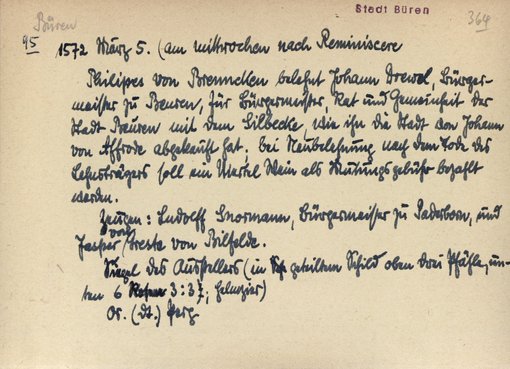 Büren
Stadt Büren
364
95 1572 März 5. (am mittwochen nach Reminiscere
Philipes von Brenncken belehnt Johann Drewel, Bürger-
meister zu Beuren, für Bürgermeister, Rat und Gemeinheit der
Stadt Beuren mit dem Silbecke, wie ihn die Stadt von Johann
von Affrode abgekauft hat; bei Neubelehnung nach dem Tode des
Lehensträgers soll ein Viertel Wein als Mutungsgebühr bezahlt
werden.
Zeugen: Ludolff Snormann, Bürgermeister zu Paderborn, und
Jasper von Greste von Bilfelde.
Siegel des Ausstellers (in geteiltem Schild oben drei Pfähle, un-
ten 6 3:3; Helmzier)
Or. (dt.) Perg